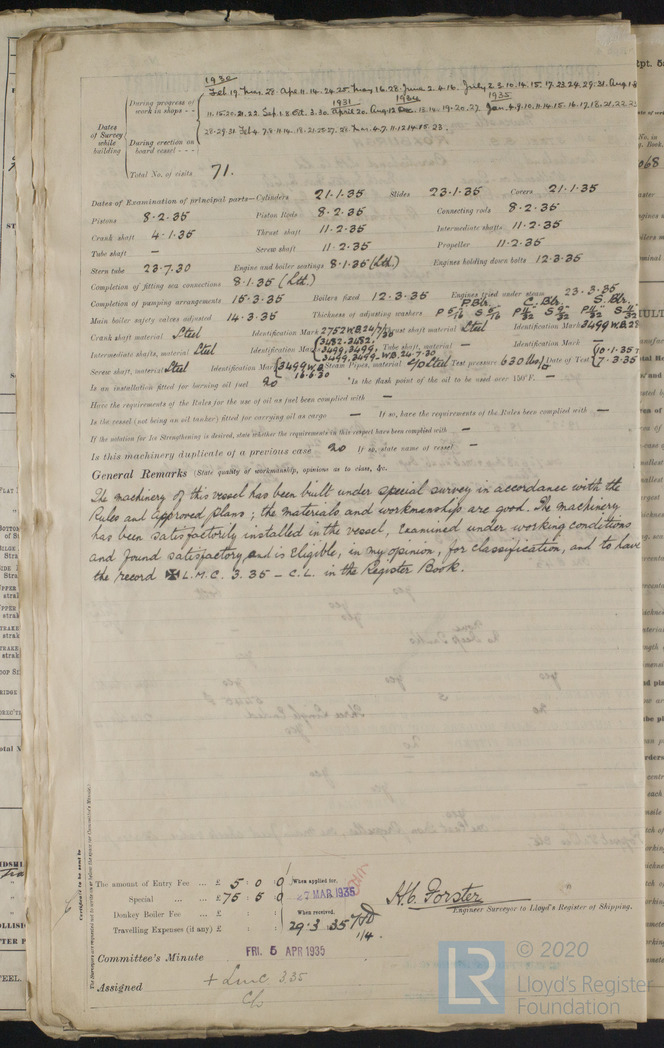 1930
During progress of work in shops - - Feb. 19. Mar. 28. Apr. 11. 14. 24. 25. May 16. 28. June 2. 4. 16. July 2. 3. 10. 14. 15. 17. 23. 24. 29. 31. Aug. 1. 8
1931 1934 1935
11. 15. 20. 21. 22. Sep. 1. 3. Oct. 3. 30. April 20. Aug. 12. Dec. 13. 14. 19. 20. 27. Jan. 4. 9. 10. 11. 14. 15. 16. 17. 18. 21. 22. 23
Dates of Survey while building
During erection on board vessel - - - 28. 29. 31. Feb. 4. 7. 8. 11. 14. 18. 21. 25. 27. 28. Mar. 4. 7. 11. 12. 14. 15. 23.
Total No. of visits 71.
Dates of Examination of principal parts—Cylinders 21.1.35 Slides 23.1.35 Covers 21.1.35
Pistons 8.2.35 Piston Rods 8.2.35 Connecting rods 8.2.35
Crank shaft 4.1.35 Thrust shaft 11.2.35 Intermediate shafts 11.2.35
Tube shaft — Screw shaft 11.2.35 Propeller 11.2.35
Stern tube 23.7.30 Engine and boiler seatings 8.1.35 (Lth.) Engines holding down bolts 12.3.35
Completion of fitting sea connections 8.1.35 (Lth.)
Completion of pumping arrangements 15.3.35 Boilers fixed 12.3.35 Engines tried under steam 23.3.35
P.Blr. C.Blr. S.Blr.
Main boiler safety valves adjusted 14.3.35 Thickness of adjusting washers
Crank shaft material Steel Identification Mark Thrust shaft material Steel Identification Mark 3499 W.B. 28
Intermediate shafts, material Steel Identification Marks 3499, 3499. W.B. 24.7.30 Tube shaft, material — Identification Mark —
Screw shaft, material Steel Identification Mark 3499 W.B. 16.6.30 Steam Pipes, material Steel Test pressure 630 lbs Date of Test 10.1.35 7.3.35
Is an installation fitted for burning oil fuel no Is the flash point of the oil to be used over 150°F. —
Have the requirements of the Rules for the use of oil as fuel been complied with —
Is the vessel (not being an oil tanker) fitted for carrying oil as cargo — If so, have the requirements of the Rules been complied with —
If the notation for Ice Strengthening is desired, state whether the requirements in this respect have been complied with —
Is this machinery duplicate of a previous case no If so, state name of vessel —
General Remarks (State quality of workmanship, opinions as to class, &c.
The machinery of this vessel has been built under special survey in accordance with the
Rules and approved plans; the materials and workmanship are good. The machinery
has been satisfactorily installed in the vessel, examined under working conditions
and found satisfactory and is eligible, in my opinion, for classification, and to have
the record ✠ L.M.C. 3.35 – C.L. in the Register Book.
The amount of Entry Fee ... £ 5 : 0 : 0 When applied for,
Special ... £ 75 : 5 : 0 27 MAR 1935
Donkey Boiler Fee ... £ : : When received,
Travelling Expenses (if any) £ : : 29.3.35
1/4.
H.C. Forster
Engineer Surveyor to Lloyd's Register of Shipping.
Committee's Minute FRI. 5 APR 1935
Assigned + LMC 3.35
C.L.
© 2020
LR
Lloyd's Register
Foundation